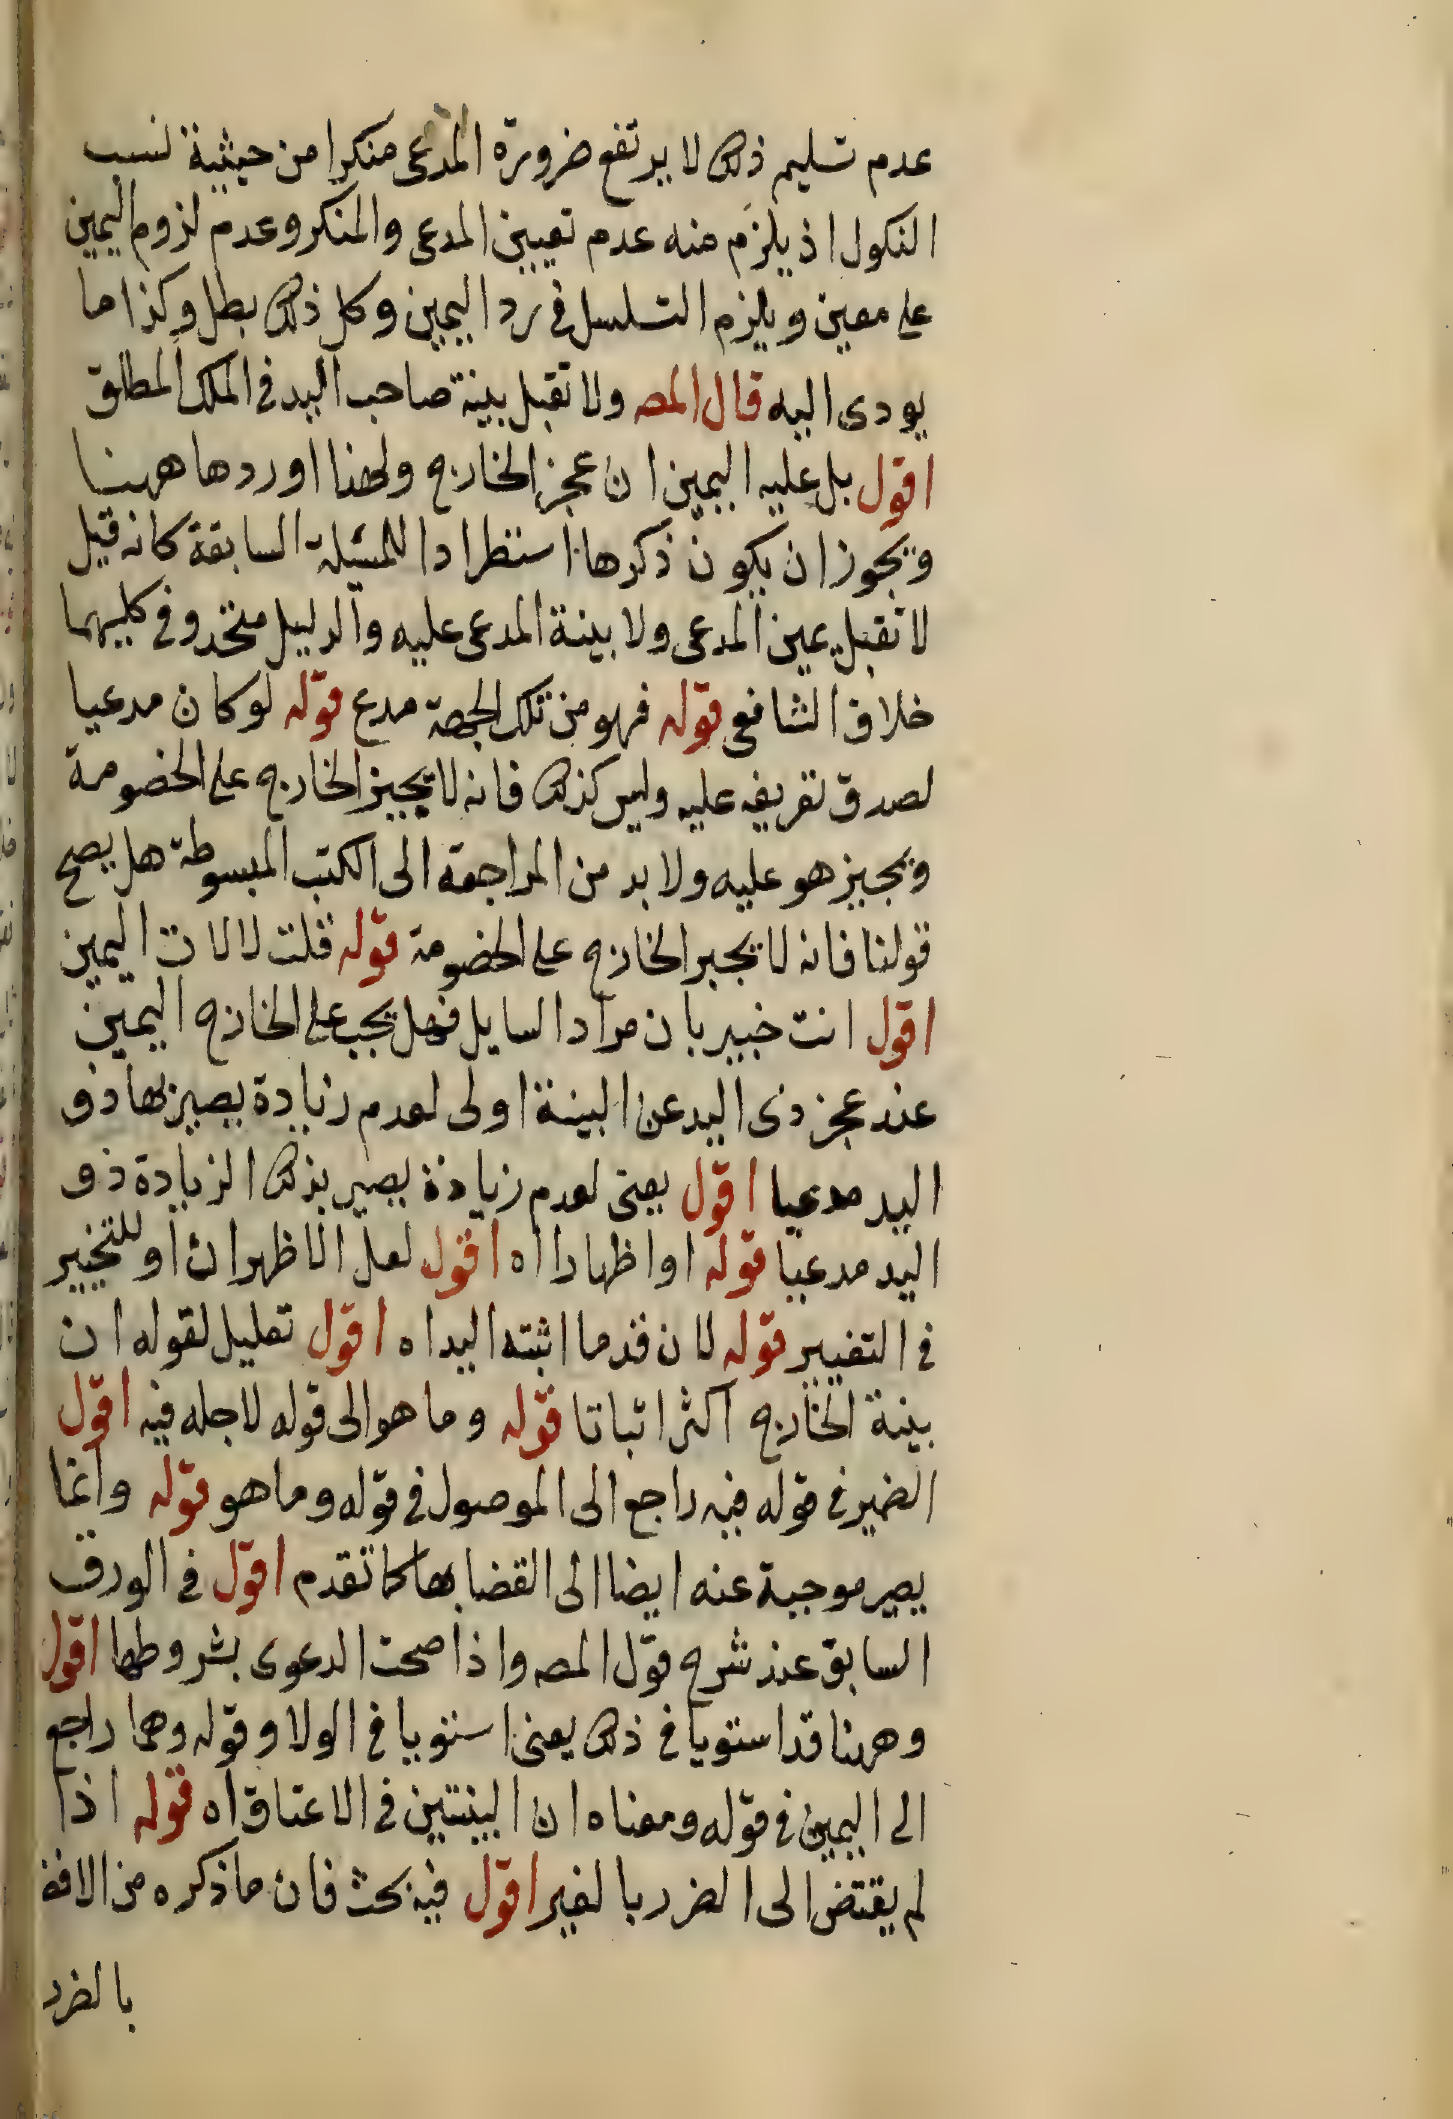 عدم تسليم ذلك لا يرتفع ضرورة المدعى منكرا من حيثية نسب
النكول اذ يلزم منه عدم تعيين المدعى والمنكر وعدم لزوم اليمين
على معين ويلزم التسلسل فى رد اليمين وكل ذلك بطل وكذا ما
يودى اليه قال المصه ولا تقبل بينة صاحب اليد فى الملك المطلق
اقول بل عليه اليمين ان عجز الخارج ولهذا اوردها ههنا
ويجوز ان يكون ذكرها استطرادا للمسئلة السابقة كانه قيل
لا تقبل يمين المدعى ولا بينة المدعى عليه والدليل متحد وفى كليهما
خلاف الشافعى قوله فهو من تلك الجهة مدع قوله لو كان مدعيا
لصدق تعريفه عليه وليس كذلك فانه لا يجبز الخارج على الخصومة
ويجبز هو عليه ولا بد من المراجعة الى الكتب المبسوطة هل يصح
قولنا فانه لا يجبر الخارج على الخصومة قوله قلت لا لان اليمين
اقول انت خبير بان مراد السايل فهل يجب على الخارج اليمين
عند عجز ذى اليد عن البينة اولى لعدم زيادة يصير بها ذو
اليد مدعيا اقول يعنى لعدم زيادة يصير بذلك الزيادة ذو
اليد مدعيا قوله او اظهارا اه اقول لعل الاظهر ان او للتخيير
فى التفسير قوله لان قدر ما اثبته اليد اه اقول تعليل لقوله ان
بينة الخارج اكثر اثباتا قوله وما هو الى قوله لاجله فيه اقول
الضمير فى قوله فيه راجع الى الموصول فى قوله وما هو قوله وانما
يصير موجبة عنه ايضا الى القضا بها كما تقدم اقول فى الورق
السابق عند شرح قول المصه واذا صحت الدعوى بشروطها اقول
وههنا قد استويا فى ذلك يعنى استويا فى الولا وقوله وهما راجع
الى اليمين فى قوله ومعناه ان البينتين فى الاعتاق اه قوله اذا
لم يقتض الى الضرر بالغير اقول فيه بحث فان ما ذكره من الافض
بالضرر